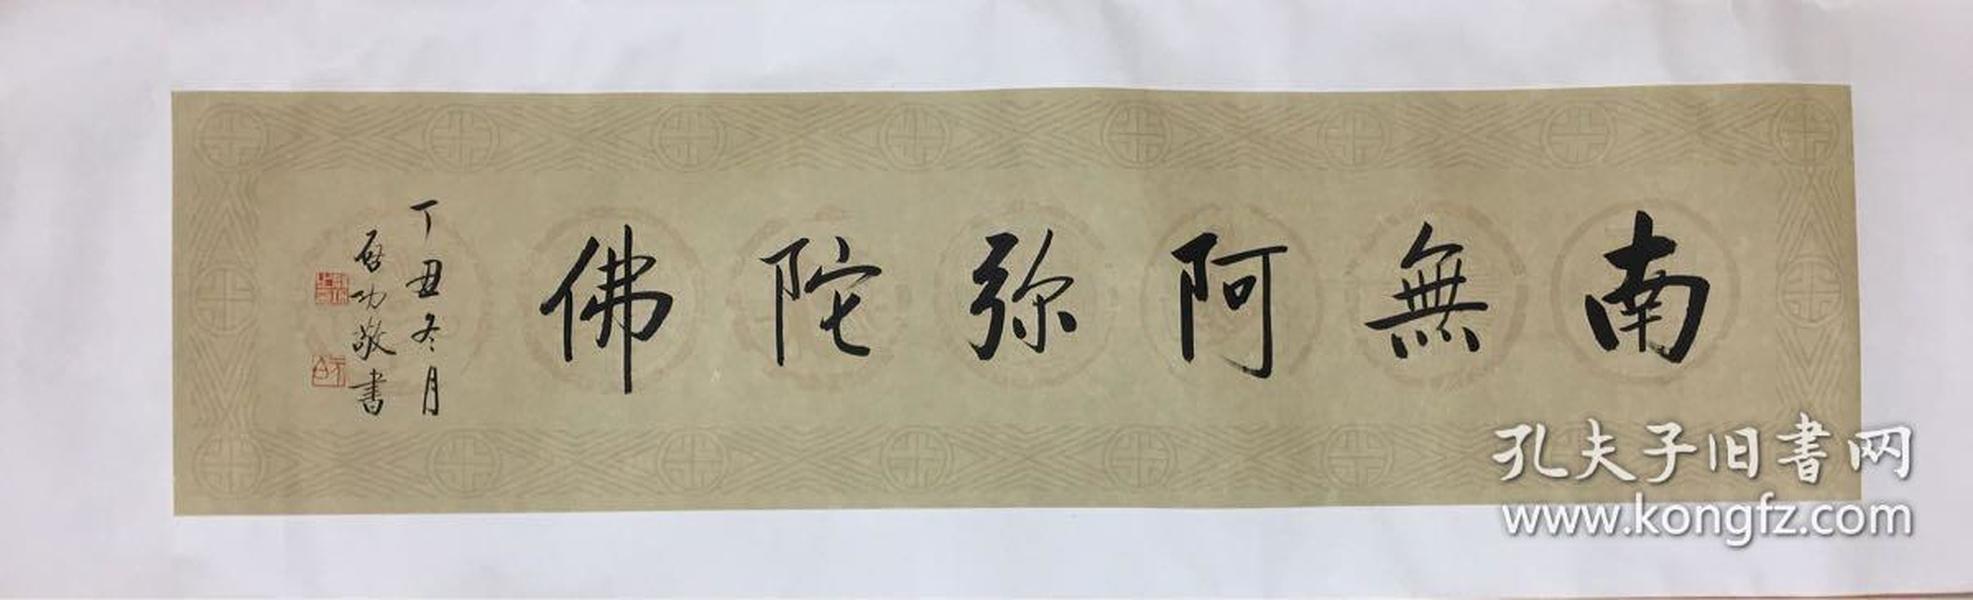 南無阿弥陀佛
丁丑冬月
启功敬書
孔夫子旧書网
www.kongfz.com